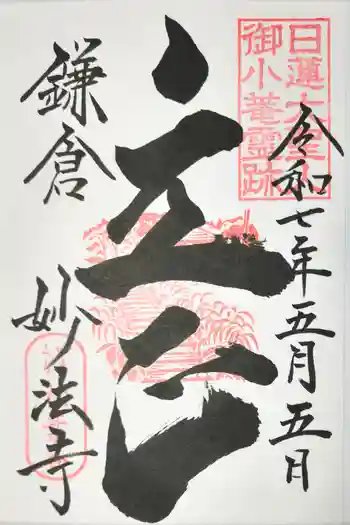 日蓮大聖人
御小菴霊跡
令和七年五月五日
立正
鎌倉 妙法寺